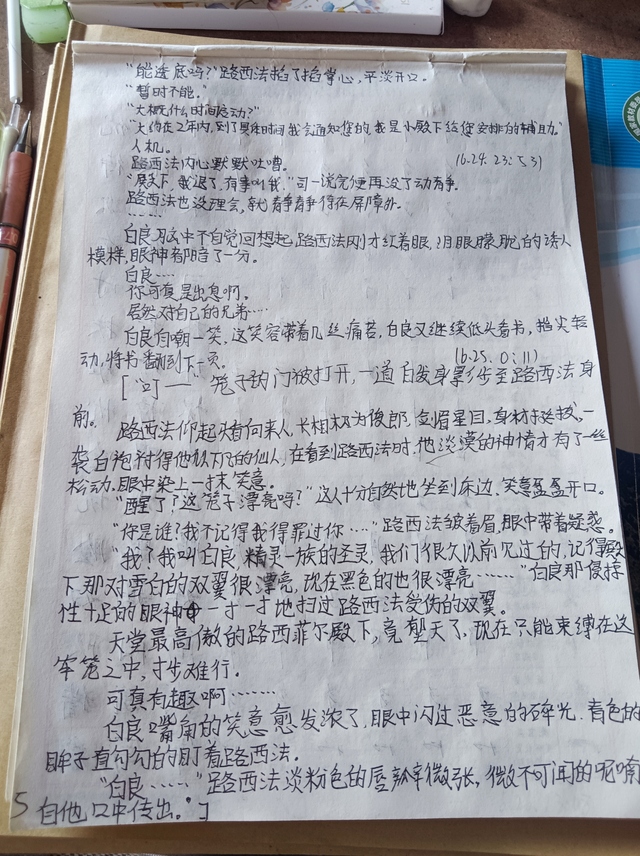 “能透底吗？”路西法掐了掐掌心，平淡开口。
“暂时不能。”
“大概什么时间启动？”
“大约在2年内，到了具体时间我会通知您的，我是小殿下给您安排的辅助。”
人机。
路西法内心默默吐嘈。
(6.24. 23:53)
“殿下，我退了，有事叫我。”司一说完便再没了动静。
路西法也没理会，
……
白良脑中不自觉回想起，路西法刚才红着眼，泪眼朦胧的诱人
模样，眼神都暗了一分。
白良…
你可真是出息啊。
居然对自己的兄弟…
白良自嘲一笑，这笑容带着几丝痛苦，白良又继续低头看书，指尖轻
动，将书翻到下一页。
(6.25. 0:11)
[“叮—”笼子的门被打开，一道白发身影步至路西法身
前。
路西法仰起头看向来人，长相极为俊郎，剑眉星目，身材挺拔，一
袭白袍衬得他似下凡的仙人，在看到路西法时，他淡漠的神情才有了一丝
松动，眼中染上一抹笑意。
“醒了？这笼子漂亮吗？”这人十分自然地坐到床边，笑意盈盈开口。
“你是谁？我不记得我得罪过你……”路西法皱着眉，眼中带着疑惑。
“我？我叫白良，精灵一族的圣灵，我们很久以前见过的，记得殿
下那对雪白的双翼很漂亮，现在黑色的也很漂亮……”白良那侵掠
性十足的眼神一寸一寸地扫过路西法受伤的双翼。
天堂最高傲的路西菲尔殿下，竟堕天了，现在只能束缚在这
牢笼之中，寸步难行。
可真有趣啊……
白良嘴角的笑意愈发浓了，眼中闪过恶意的碎光，青色的
眸子直勾勾的盯着路西法。
“白良……”路西法淡粉色的唇瓣微张，微不可闻的呢喃
自他口中传出。]
5